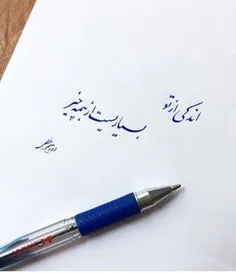 اندکی از تو
بسیاریست از همه چیز